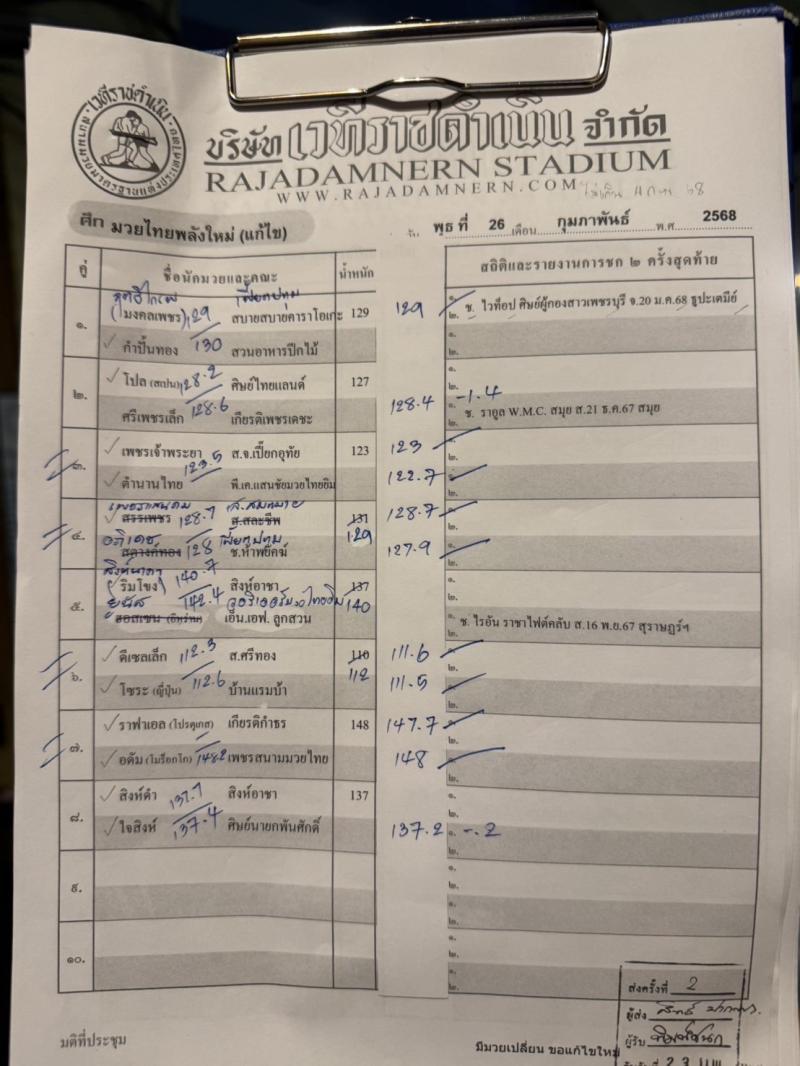 เวทีราชดำเนิน
บริษัท เวทีราชดำเนิน จำกัด
RAJADAMNERN STADIUM
WWW.RAJADAMNERN.COM
ศึก มวยไทยพลังใหม่ (แก้ไข)
พุธ ที่ 26 เดือน กุมภาพันธ์ พ.ศ 2568
คู่ ชื่อนักมวยและคณะ น้ำหนัก สถิติและรายงานการชก ๒ ครั้งสุดท้าย
๑. (มงคลเพชร) 129 สบายสบายคาราโอเกะ 129 129 ๑. ๒. ช. ไวท็อป ศิษย์ผู้กองสาวเพชรบุรี จ.20 ม.ค.68 ธูปะเตมีย์
กำปั้นทอง 130 สวนอาหารปีกไม้ ๑. ๒.
๒. โปล (สเปน) 128.2 ศิษย์ไทยแลนด์ 127 ๑. ๒.
ศรีเพชรเล็ก 128.6 เกียรติเพชรเดชะ 128.4 -1.4 ๑. ๒. ช. ราอูล W.M.C. สมุย ส.21 ธ.ค.67 สมุย
๓. เพชรเจ้าพระยา ส.จ.เปี๊ยกอุทัย 123 123 ๑. ๒.
ตำนานไทย 123.5 พี.เค.แสนชัยมวยไทยยิม 122.7 ๑. ๒.
๔. สรรเพชร 128.7 ส.สละชีพ 131 129 128.7 ๑. ๒.
อภิเดช
สตางค์ทอง 128 ช.ห้าพยัคฆ์ 127.9 ๑. ๒.
๕. ริมโขง 140.7 สิงห์อาชา 137 140 ๑. ๒.
ฮอสเซน (อิหร่าน) 142.4 เอ็น.เอฟ. ลูกสวน ๑. ๒. ช. ไรอัน ราชาไฟต์คลับ ส.16 พ.ย.67 สุราษฎร์ฯ
๖. ดีเซลเล็ก 112.3 ส.ศรีทอง 110 112 111.6 ๑. ๒.
โซระ (ญี่ปุ่น) 112.6 บ้านแรมบ้า 111.5 ๑. ๒.
๗. ราฟาเอล (โปรตุเกส) เกียรติกำธร 148 147.7 ๑. ๒.
อดัม (โมร็อกโก) 148.2 เพชรสนามมวยไทย 148 ๑. ๒.
๘. สิงห์ดำ 137.7 สิงห์อาชา 137 ๑. ๒.
ใจสิงห์ 137.4 ศิษย์นายกพันศักดิ์ 137.2 ๑. -.2 ๒.
๙. ๑. ๒.
๑. ๒.
๑๐. ๑. ๒.
๑. ๒.
ส่งครั้งที่ 2
ผู้ส่ง
ผู้รับ
มติที่ประชุม มีมวยเปลี่ยน ขอแก้ไขใหม่